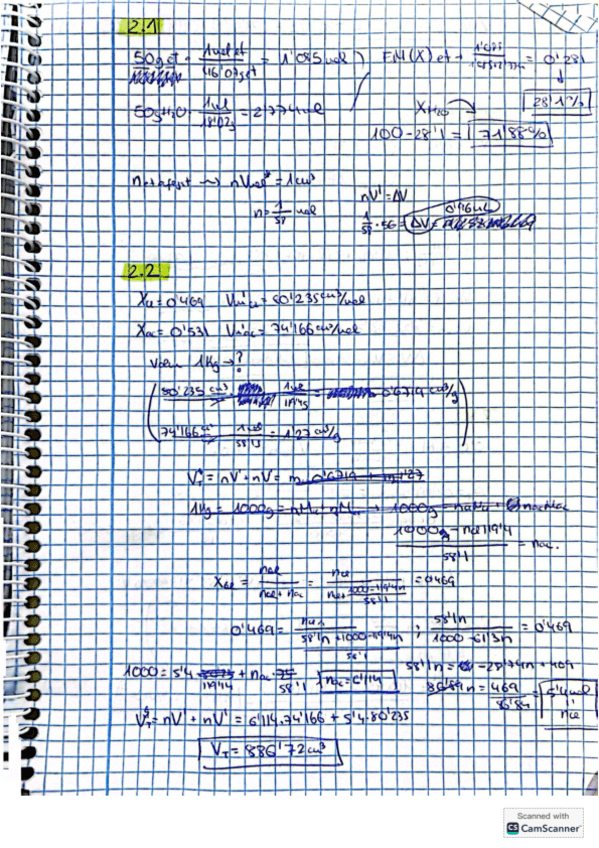 2.1
50g et · 1mol et / 46'07g et = 1'085 mol
FM(X) et → 1'085 / = 0'281
28'1%
50g H2O · 1mol / 18'02g = 2'774 mol
XH2O
100 - 28'1 = 71'88%
nV' = ΔV
n = 1/58 mol
2.2
Xcl = 0'469 Vmcl = 80'235 cm³/mol
Xac = 0'531 Vmac = 74'166 cm³/mol
Volum 1Kg → ?
80'235 cm³ · 1mol / 119'45 = 0'6719 cm³/g
74'166 cm³ 1mol / 58'1 = 1'27 cm³/g
VT = nV' + nV' = m 0'6719 + m 1'27
1Kg = 1000g = nM + nM → 1000g = nclMcl + nacMac
1000g - ncl 119'4 / 58'1 = nac.
Xcl = ncl / ncl + nac = ncl / ncl + 1000 - 119'4n / 58'1 = 0'469
0'469 = ncl / 58'1n + 1000 - 119'4n / 58'1 ; 58'1n / 1000 - 61'3n = 0'469
1000 = 5'4 · 119'4 + nac · 58'1 nac = 6'114
58'1n = -28'74n + 469
86'84n = 469 / 86'84 = 5'4 mol ncl
VT = nV' + nV' = 6'114 · 74'166 + 5'4 · 80'235
VT = 886'72 cm³
Scanned with
CS CamScanner